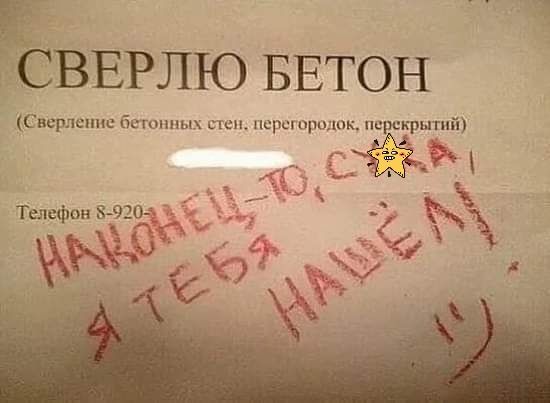 СВЕРЛЮ БЕТОН
(Сверление бетонных стен, перегородок, перекрытий)
Телефон 8-920-
НАКОНЕЦ-ТО, С КА,
Я ТЕБЯ
НАШЁЛ!
:)